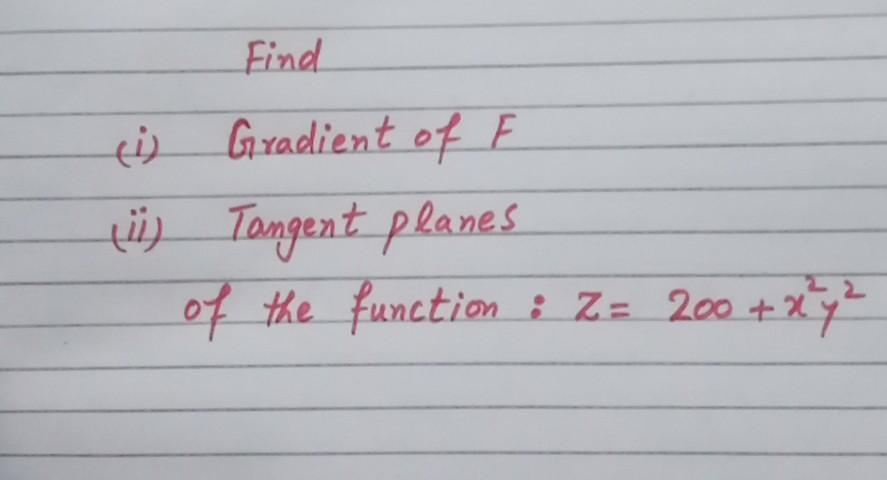 Find
(i) Gradient of F
(ii) Tangent planes
of the function : Z = 200 + x²y²